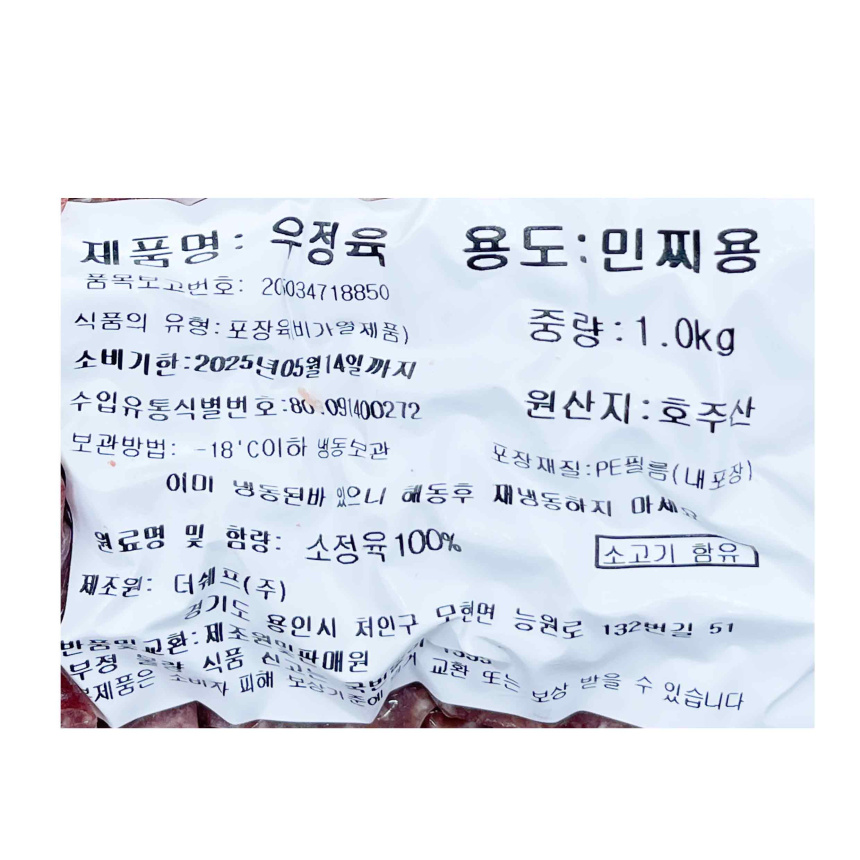 제품명: 우정육 용도:민찌용
품목보고번호: 20034718850
식품의 유형:포장육비가열제품) 중량:1.0kg
소비기한:2025년05월14일까지
수입유통식별번호: 원산지:호주산
보관방법: -18'C이하 냉동보관 포장재질:PE필름(내포장)
이미 냉동된바 있으니 해동후 재냉동하지 마세요
원료명 및 함량: 소정육100% 소고기 함유
제조원: 더쉐프(주)
경기도 용인시 처인구 모현면 능원로 132번길 51
반품및교환:제조원및판매원
부정 불량 식품 신고는 국번없이 1399
제품은 소비자 피해 보상기준에 교환 또는 보상 받을 수 있습니다